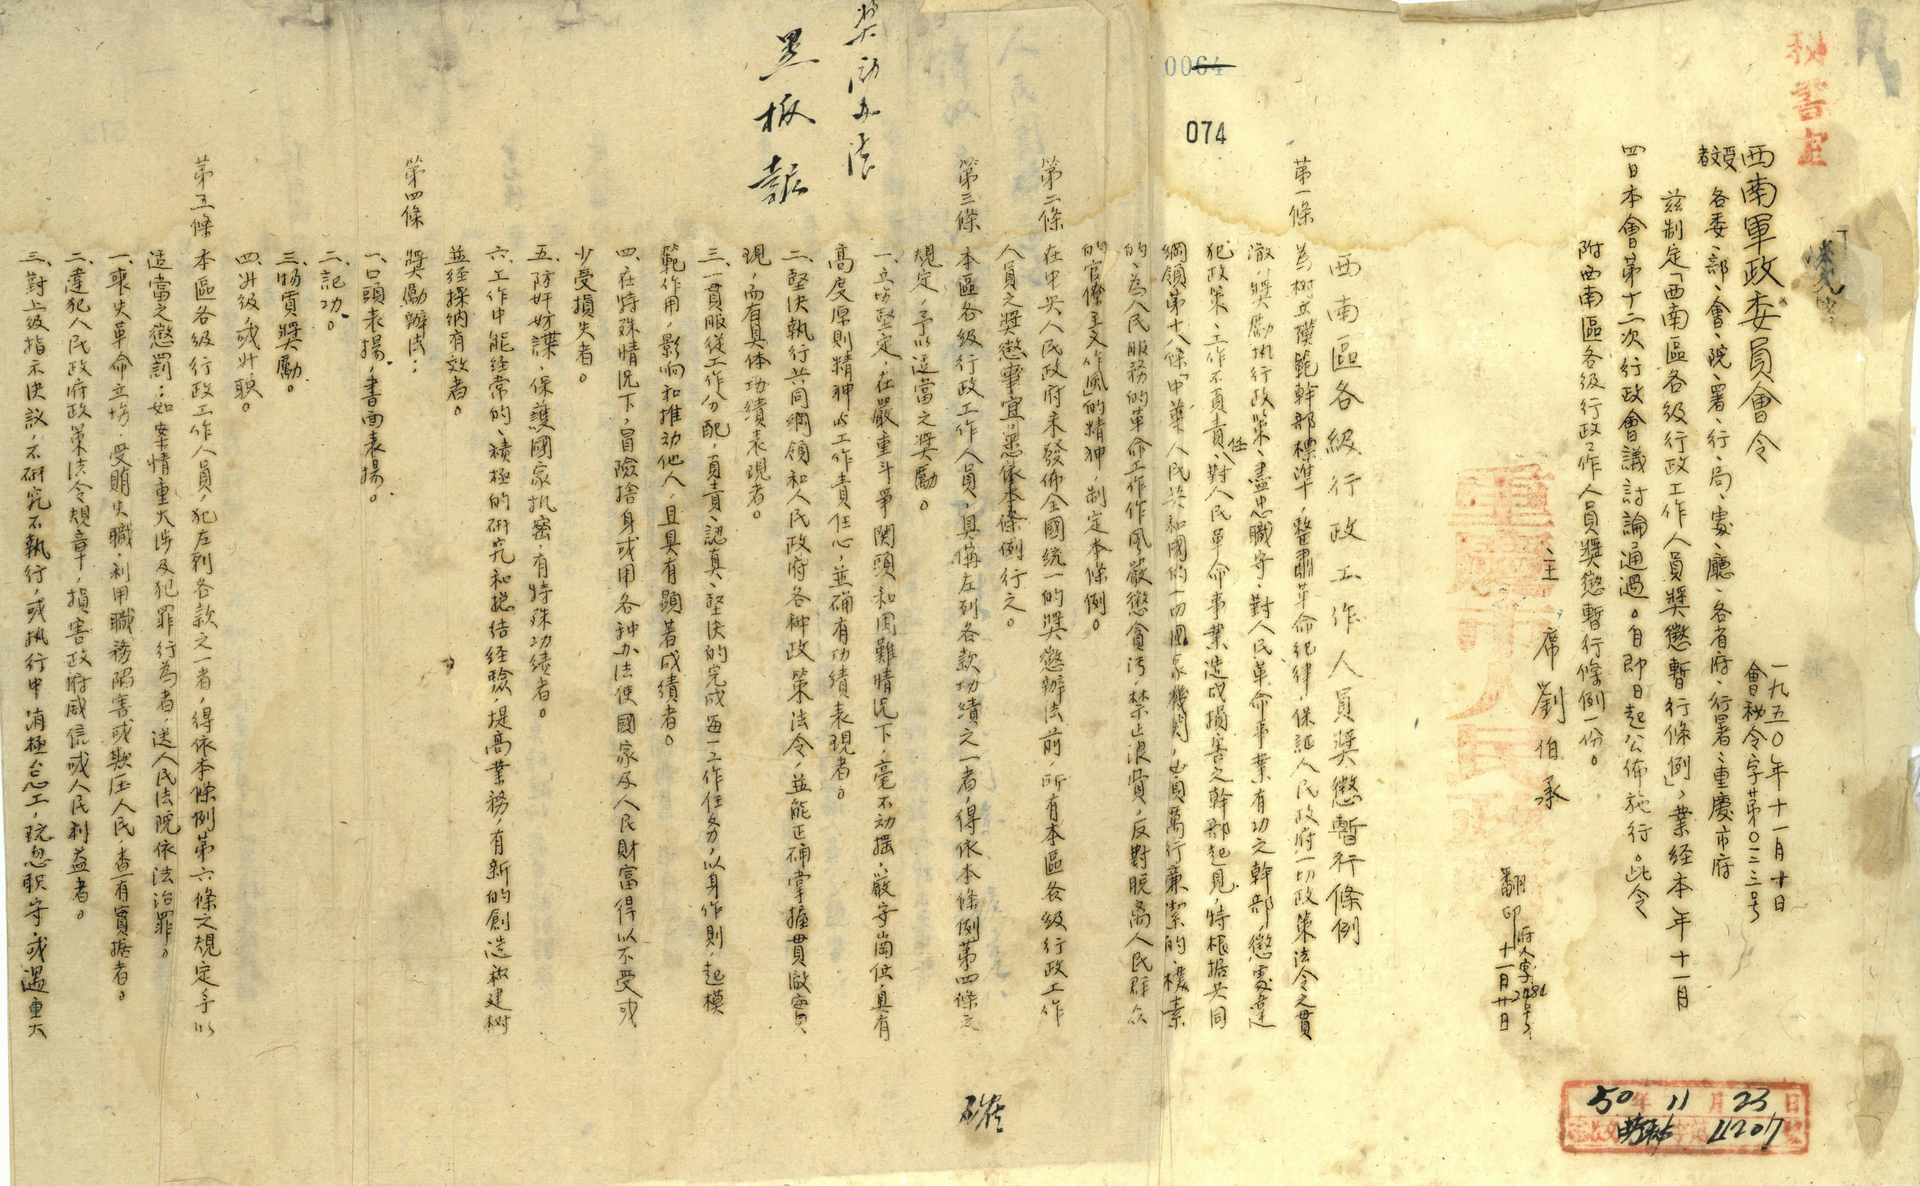 秘書室
西南軍政委員會令
一九五〇年十一月十日
會秘令字第〇二三號
受文者
各委、部、會、院、署、行、局、處、廳、各省府、行署、重慶市府
茲制定「西南區各級行政工作人員獎懲暫行條例」,業经本年十一月
四日本會第十二次行政會議討論通過。自即日起公佈施行。此令
附西南區各級行政工作人員獎懲暫行條例一份。
主席 劉伯承
府人字2486号
翻印 十一月廿日
重慶市人民政府
50年11月23日
11207
西南區各級行政工作人員獎懲暫行條例
第一條 為树立模範幹部標準,整肅革命纪律,保証人民政府一切政策法令之貫
澈,獎勵执行政策、盡忠職守、對人民革命事業有功之幹部,懲處違
犯政策、工作不負責任、對人民革命事業造成損害之幹部起見,特根据共同
綱領第十八條「中華人民共和國的一切國家機関,必須厲行廉潔的、樸素
的、為人民服務的革命工作作風,嚴懲貪污,禁止浪費,反對脱离人民群众
的官僚主义作風」的精神,制定本條例。
第二條 在中央人民政府未發佈全國統一的獎懲辦法前,所有本區各級行政工作
人員之獎懲事宜,悉依本條例行之。
第三條 本區各級行政工作人員,具備左列各款功績之一者,得依本條例第四條之
規定,予以适當之獎勵。
一、立埸堅定,在嚴重斗爭関頭和困難情况下,毫不动摇,嚴守崗位,具有
高度原則精神与工作責任心,並确有功績表現者。
二、堅决執行共同綱領和人民政府各种政策法令,並能正确掌握貫澈實
現,而有具体功績表現者。
三、一貫服從工作分配,負責、認真、堅决的完成每一工作任务,以身作則,起模
範作用,影响和推动他人,且具有顯著成績者。
四、在特殊情况下,冒險捨身或用各种办法使國家及人民財富得以不受或
少受損失者。
五、防奸妨諜,保護國家机密,有特殊功績者。
六、工作中能经常的、積極的研究和總结经驗,提高業務,有新的創造和建树
並经採納有效者。
第四條 獎勵辦法:
一、口頭表揚,書面表揚。
二、記功。
三、物質獎勵。
四、升级或升职。
第五條 本區各级行政工作人員,犯左列各款之一者,得依本條例第六條之規定予以
适當之懲罰;如案情重大涉及犯罪行為者,送人民法院依法治罪。
一、喪失革命立埸,受賄失職,利用職務陷害或欺压人民,查有實据者。
二、違犯人民政府政策法令規章,損害政府威信或人民利益者。
三、對上级指示决議,不研究不執行,或执行中消極怠工,玩忽职守,或遇重大
奖励办法
黑板報
0064
074